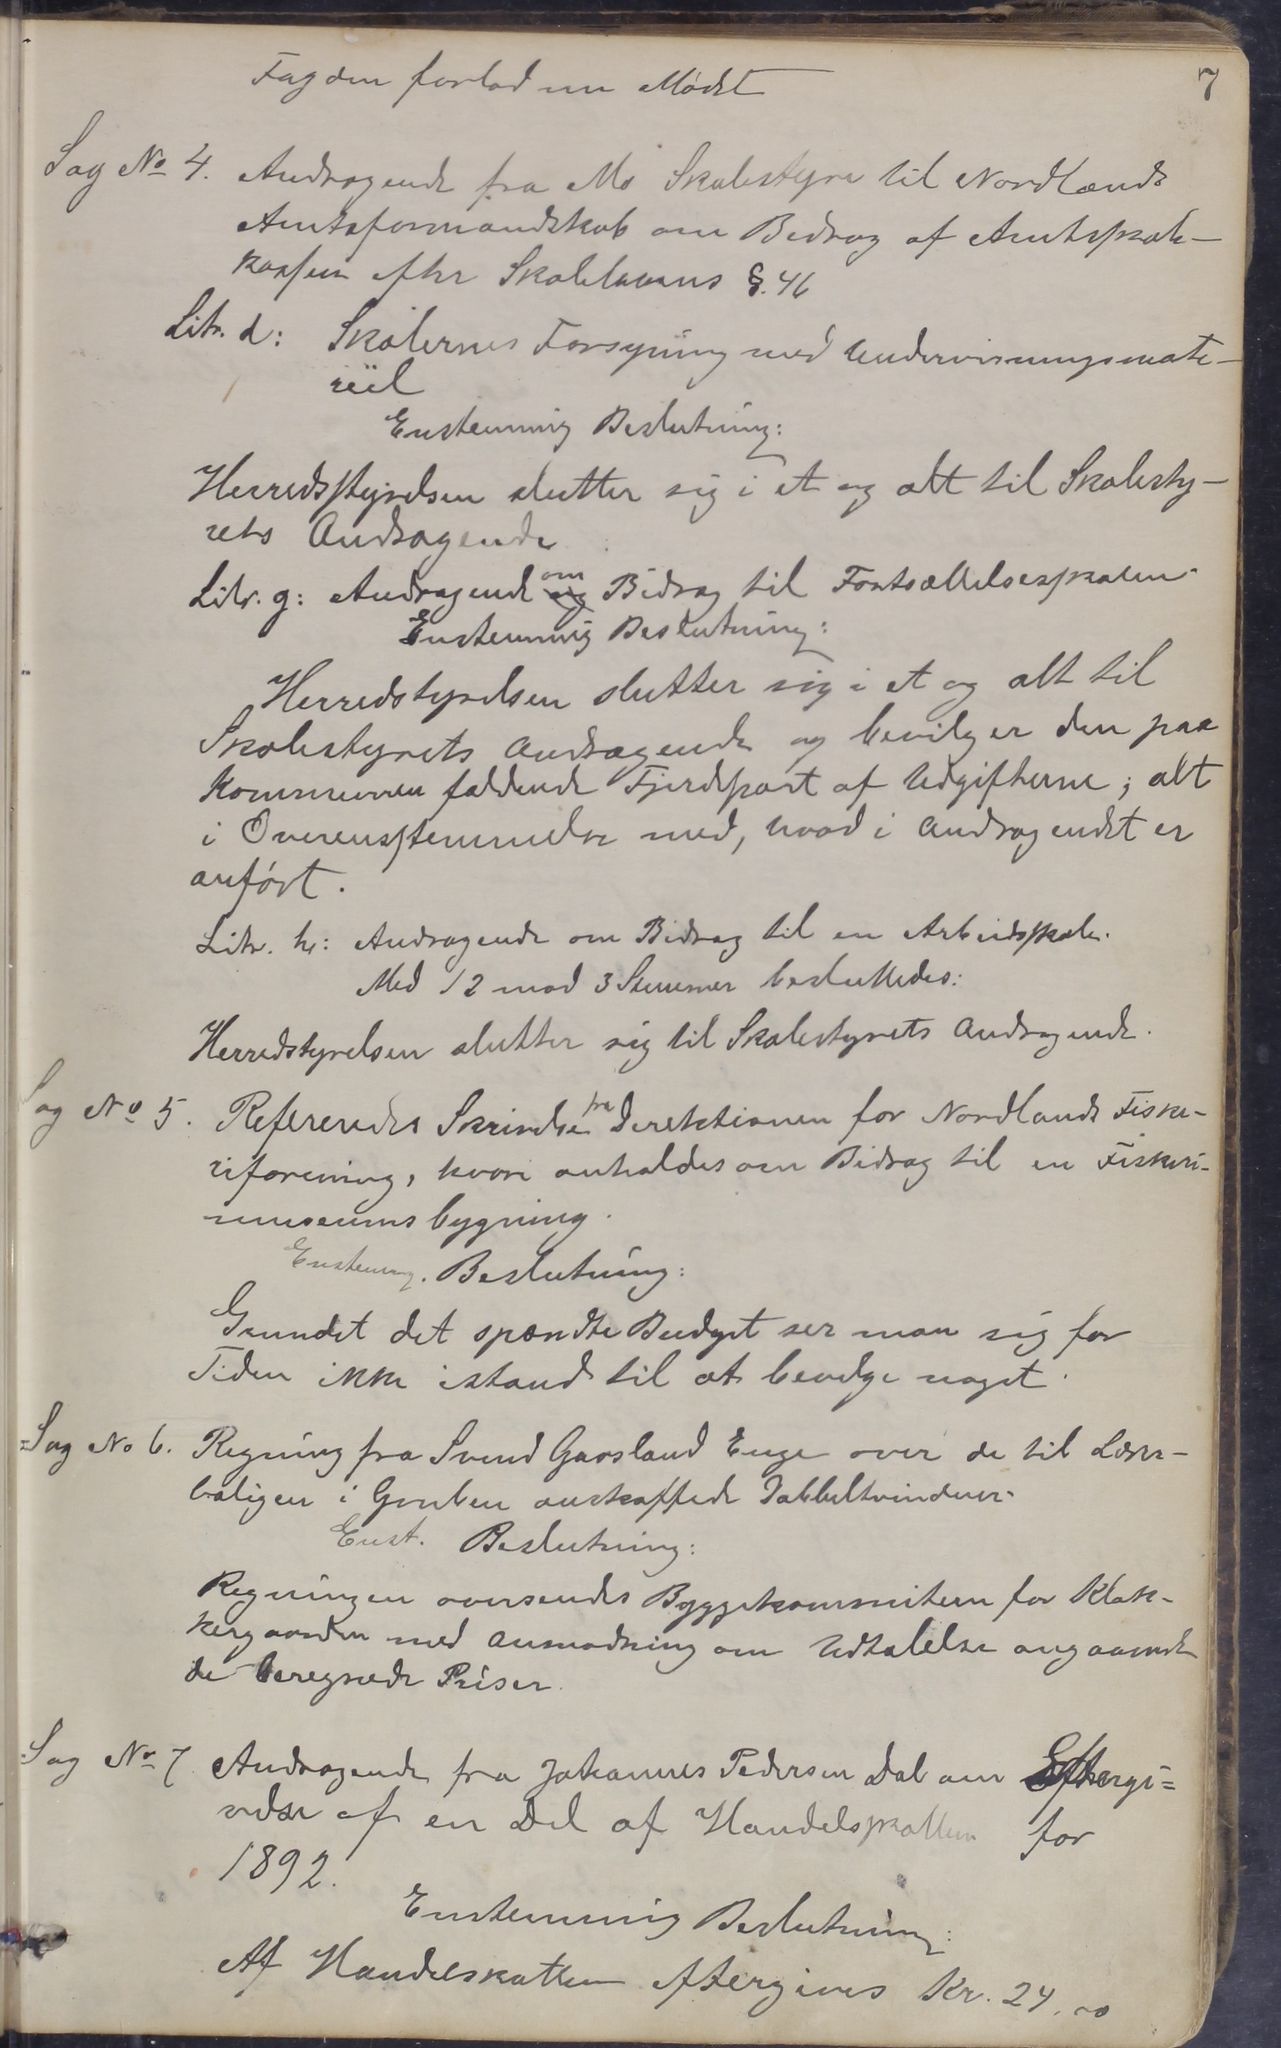 7
Fagden forlod nu Mødet
Sag No 4. Andragende fra Mo Skolestyre til Nordlands
Amtsformandskab om Bidrag af Amtsskole-
kassen efter Skolelovens §. 46
Litr. d: Skolernes Forsyning med Undervisningsmate-
riel
Enstemmig Beslutning:
Herredsstyrelsen slutter sig i et og alt til Skolesty-
rets Andragende
Litr. g: Andragende om Bidrag til Fortsættelsesskolen.
Enstemmig Beslutning:
Herredstyrelsen slutter sig i et og alt til
Skolestyrets Andragende og bevilger den paa
Kommunen faldende Fjerdpart af Udgifterne; alt
i Overensstemmelse med, hvad i Andragendet er
anført.
Litr. h: Andragende om Bidrag til en Arbeidsskole.
Med 12 mod 3 Stemmer besluttedes:
Herredstyrelsen slutter sig til Skolestyrets Andragende.
Sag No 5. Refereredes Skrivelse fra Derektionen for Nordlands Fiske-
riforening, hvori anholdes om Bidrag til en Fiskeri-
museumsbygning.
Enstemmig. Beslutning:
Grundet det spændte Budget ser man sig for
Tiden ikke istand til at bevilge noget.
Sag No 6. Regning fra Svend Gaasland Enge over de til Lærer-
boligen i Gruben anskaffede Dobbeltvinduer.
Enst. Beslutning:
Regningen oversendes Byggekommiteen for Klok-
kergaarden med Anmodning om Udtalelse angaaende
de beregnede Priser.
Sag No 7 Andragende fra Johannes Pedersen Dal om Eftergi=
velse af en Del af Handelsskatten for
1892.
Enstemmig Beslutning:
Af Handelskatten eftergives Kr. 24,00